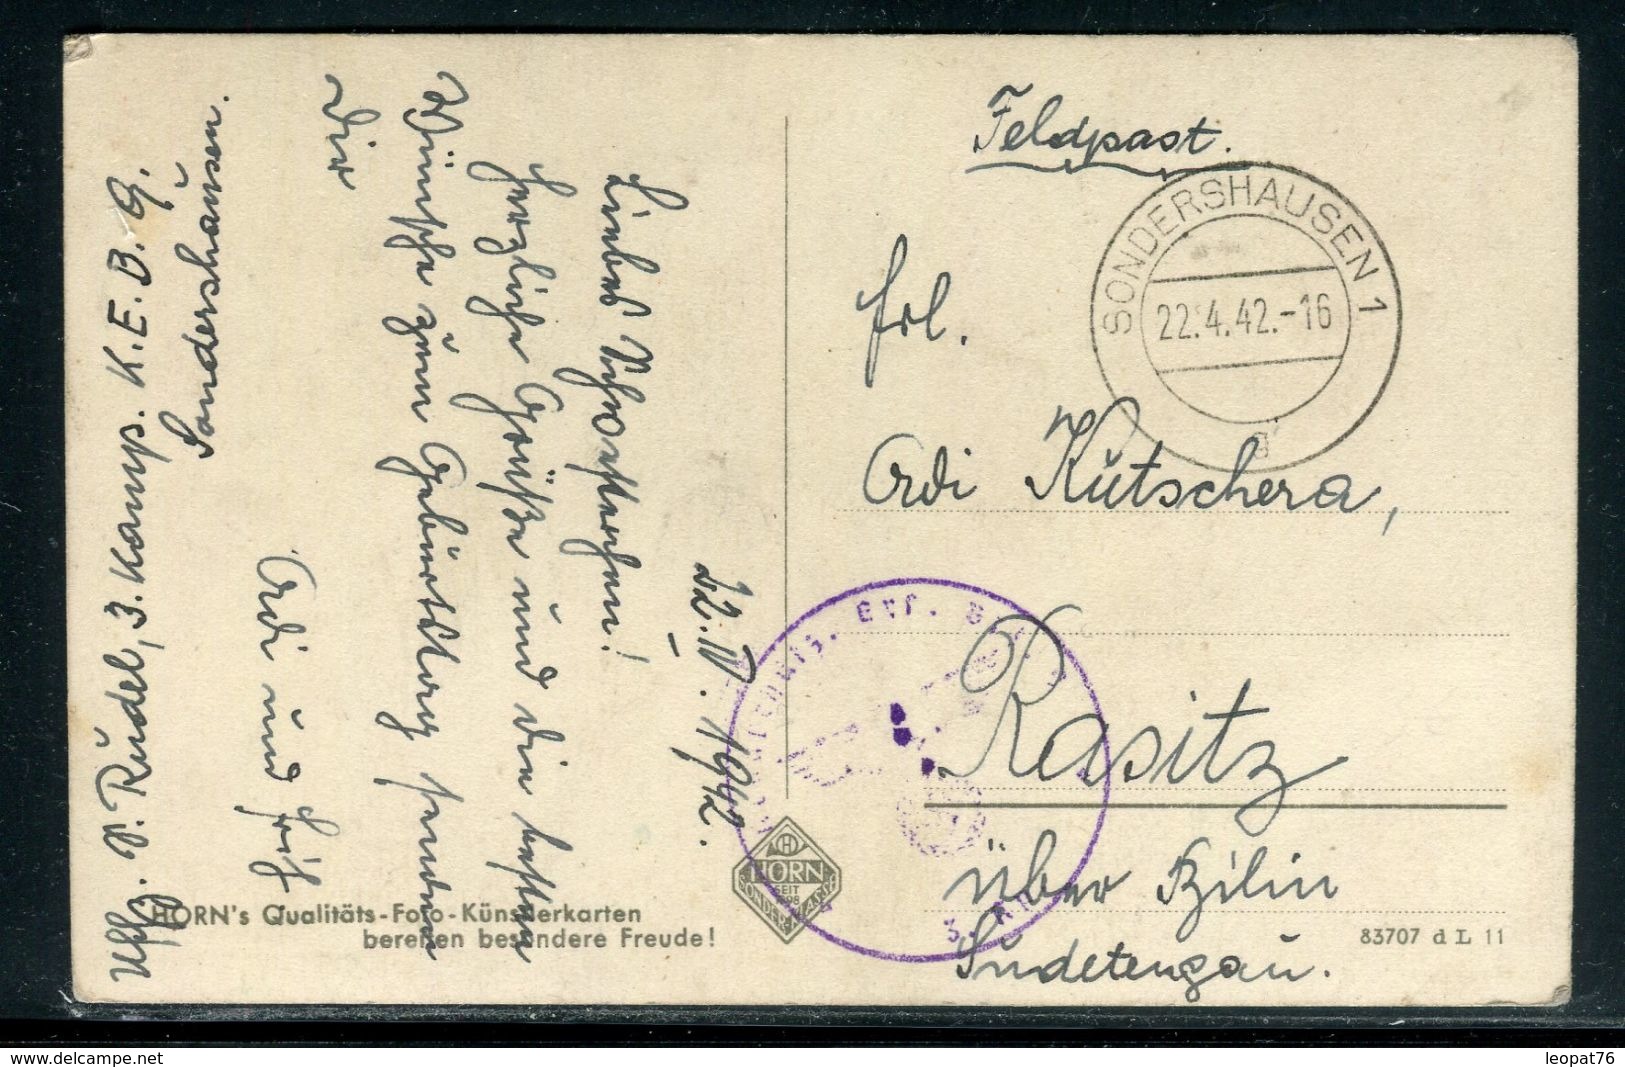 22.IV.1942.
Liebes Schwesterchen!
Herzliche Grüße und die besten
Wünsche zum Geburtstag senden
Dir
Ordi und
Uffz. P. Rudel, 3. Komp. K.E.B. 9.
Sondershausen.
Feldpost.
SONDERSHAUSEN 1
22.4.42.-16
Frl.
Kutschera,
Rasitz
über Bilin
Sudetengau.
HORN
SEIT
1898
SONDER-KLASSE
HORN's Qualitäts-Foto-Künstlerkarten
bereiten besondere Freude!
83707 d L 11
leopat76
www.delcampe.net